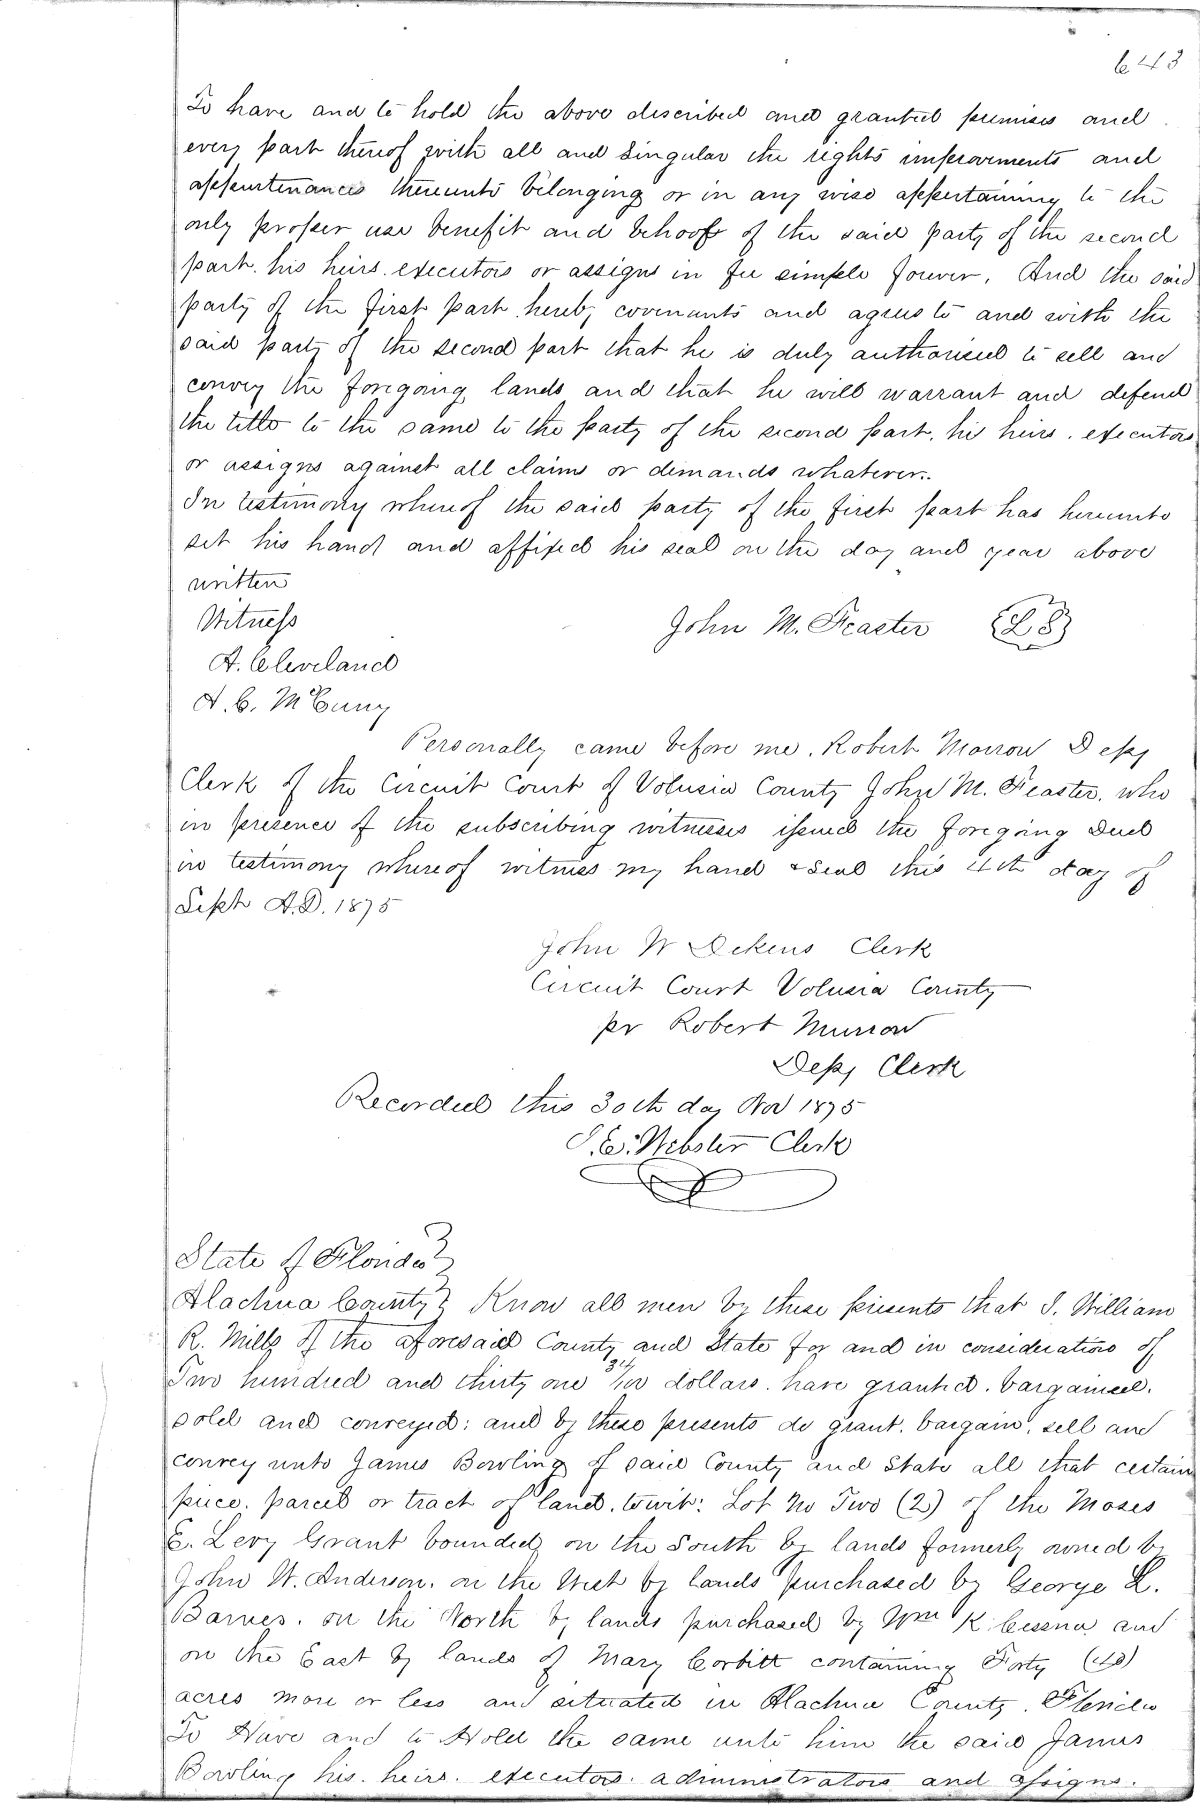 643
To have and to hold the above described and granted premises and
every part thereof with all and Singular the rights improvements and
appurtenances thereunto belonging or in any wise appertaining to the
only proper use benefit and behoof of the said party of the second
part. his heirs. executors or assigns in fee simple forever. And the said
party of the first part hereby covenants and agrees to and with the
said party of the second part that he is duly authorised to sell and
convey the foregoing lands and that he will warrant and defend
the title to the same to the party of the second part. his heirs. executors
or assigns against all claims or demands whatever.
In testimony whereof the said party of the first part has hereunto
set his hand and affixed his seal on the day and year above
written
Witness
John M. Feaster LS
A. Cleveland
A. C. McCuny
Personally came before me. Robert Morrow Depy
Clerk of the Circuit Court of Volusia County John M. Feaster. who
in presence of the subscribing witnesses issued the foregoing Deed
in testimony whereof witness my hand & Seal this 4th day of
Sept A.D. 1875
John W Dekens Clerk
Circuit Court Volusia County
pr Robert Murrow
Depy Clerk
Recorded this 30th day Nov 1875
J. E. Webster Clerk
State of Florida }
Alachua County } Know all men by these presents that I. William
R. Mills of the aforesaid County and State for and in consideration of
Two hundred and thirty one 34/100 dollars. have granted. bargained.
sold and conveyed: and by these presents do grant. bargain. sell and
convey unto James Bowling of said County and State all that certain
piece. parcel or tract of land. towit: Lot No Two (2) of the Moses
E. Levy Grant bounded on the South by lands formerly owned by
John W. Anderson. on the West by lands purchased by George L.
Barnes. on the North by lands purchased by Wm K Cessna and
on the East by lands of Mary Corbitt containing Forty (40)
acres more or less and situated in Alachua County. Florida
To Have and to Hold the same unto him the said James
Bowling his. heirs. executors. administrators and assigns.